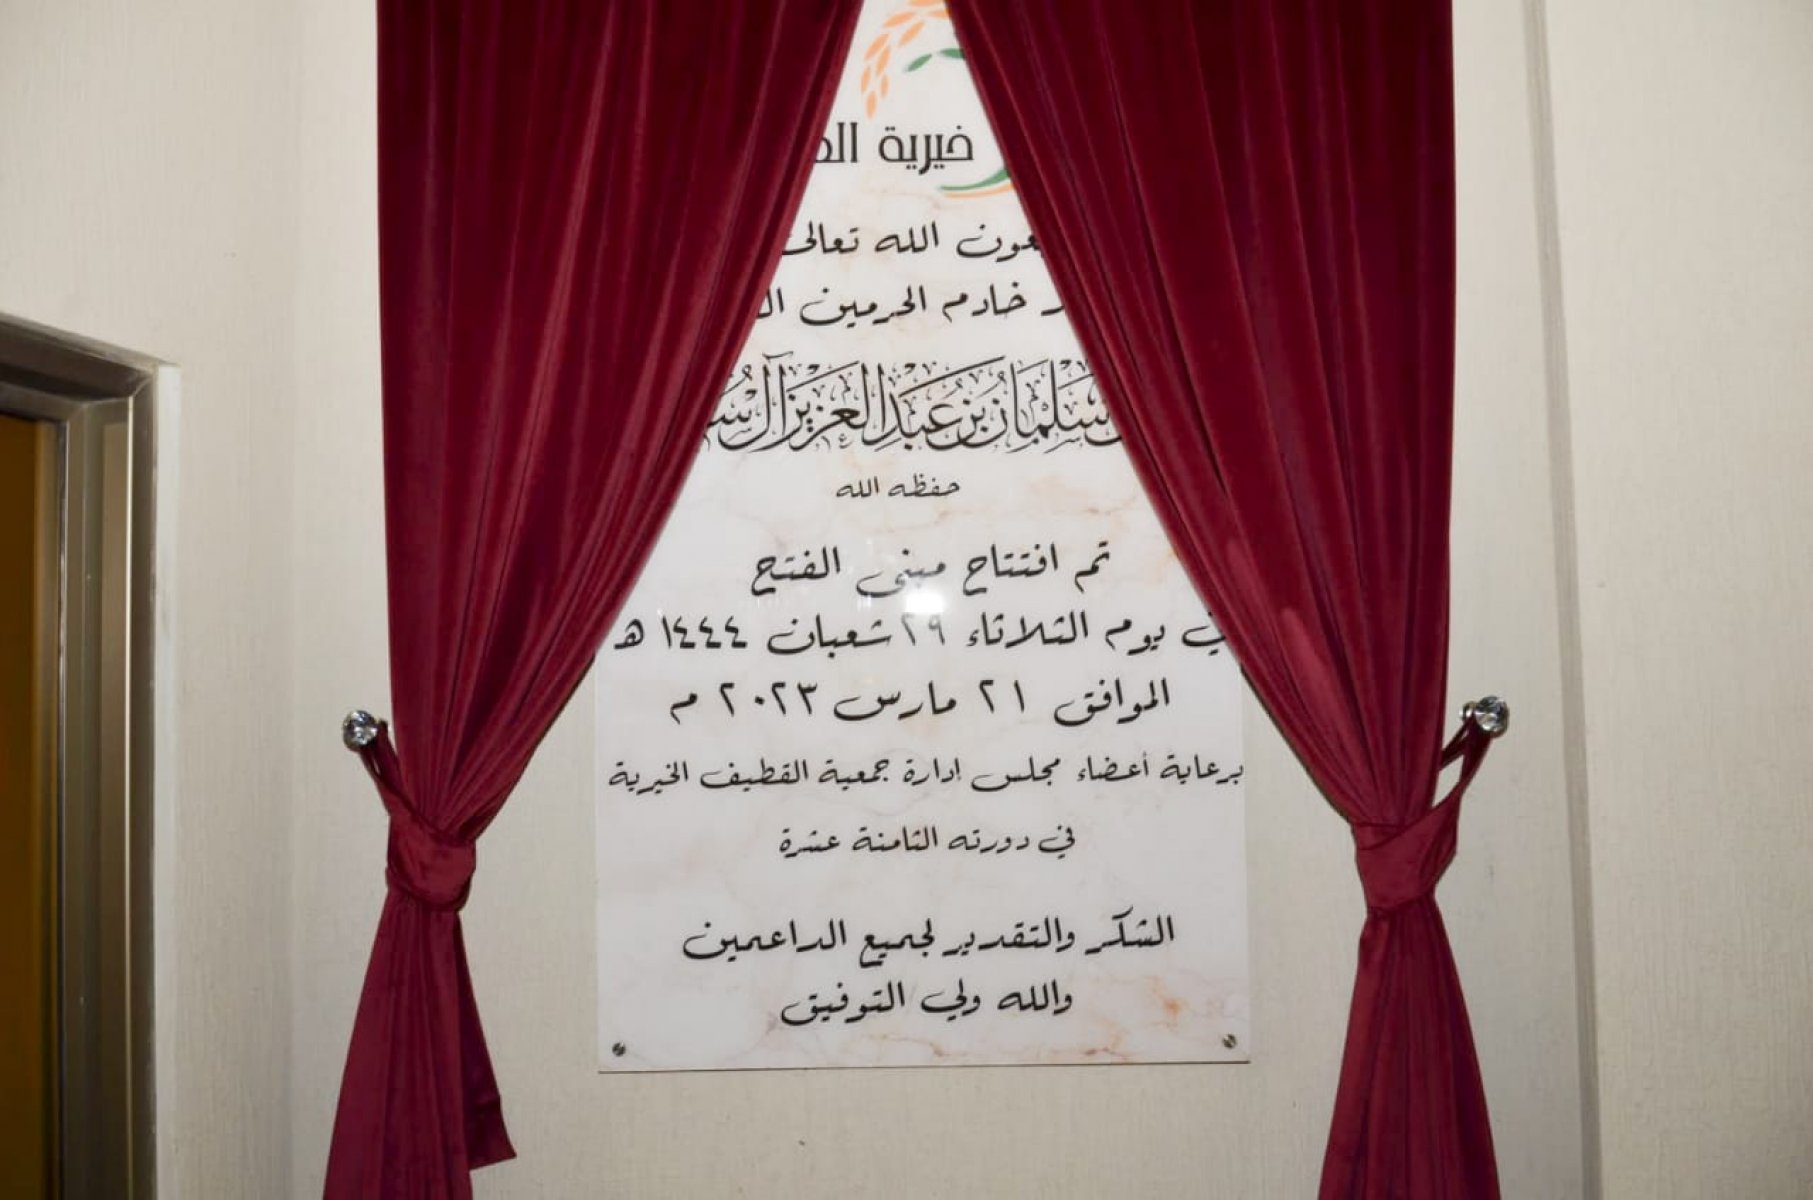 خيرية
الله تعالى
خادم الحرمين
سلمان بن عبدالعزيز آل
حفظه الله
تم افتتاح مبنى الفتح
في يوم الثلاثاء ٢٩ شعبان ١٤٤٤ هـ
الموافق ٢١ مارس ٢٠٢٣ م
برعاية أعضاء مجلس إدارة جمعية القطيف الخيرية
في دورته الثامنة عشرة
الشكر والتقدير لجميع الداعمين
والله ولي التوفيق